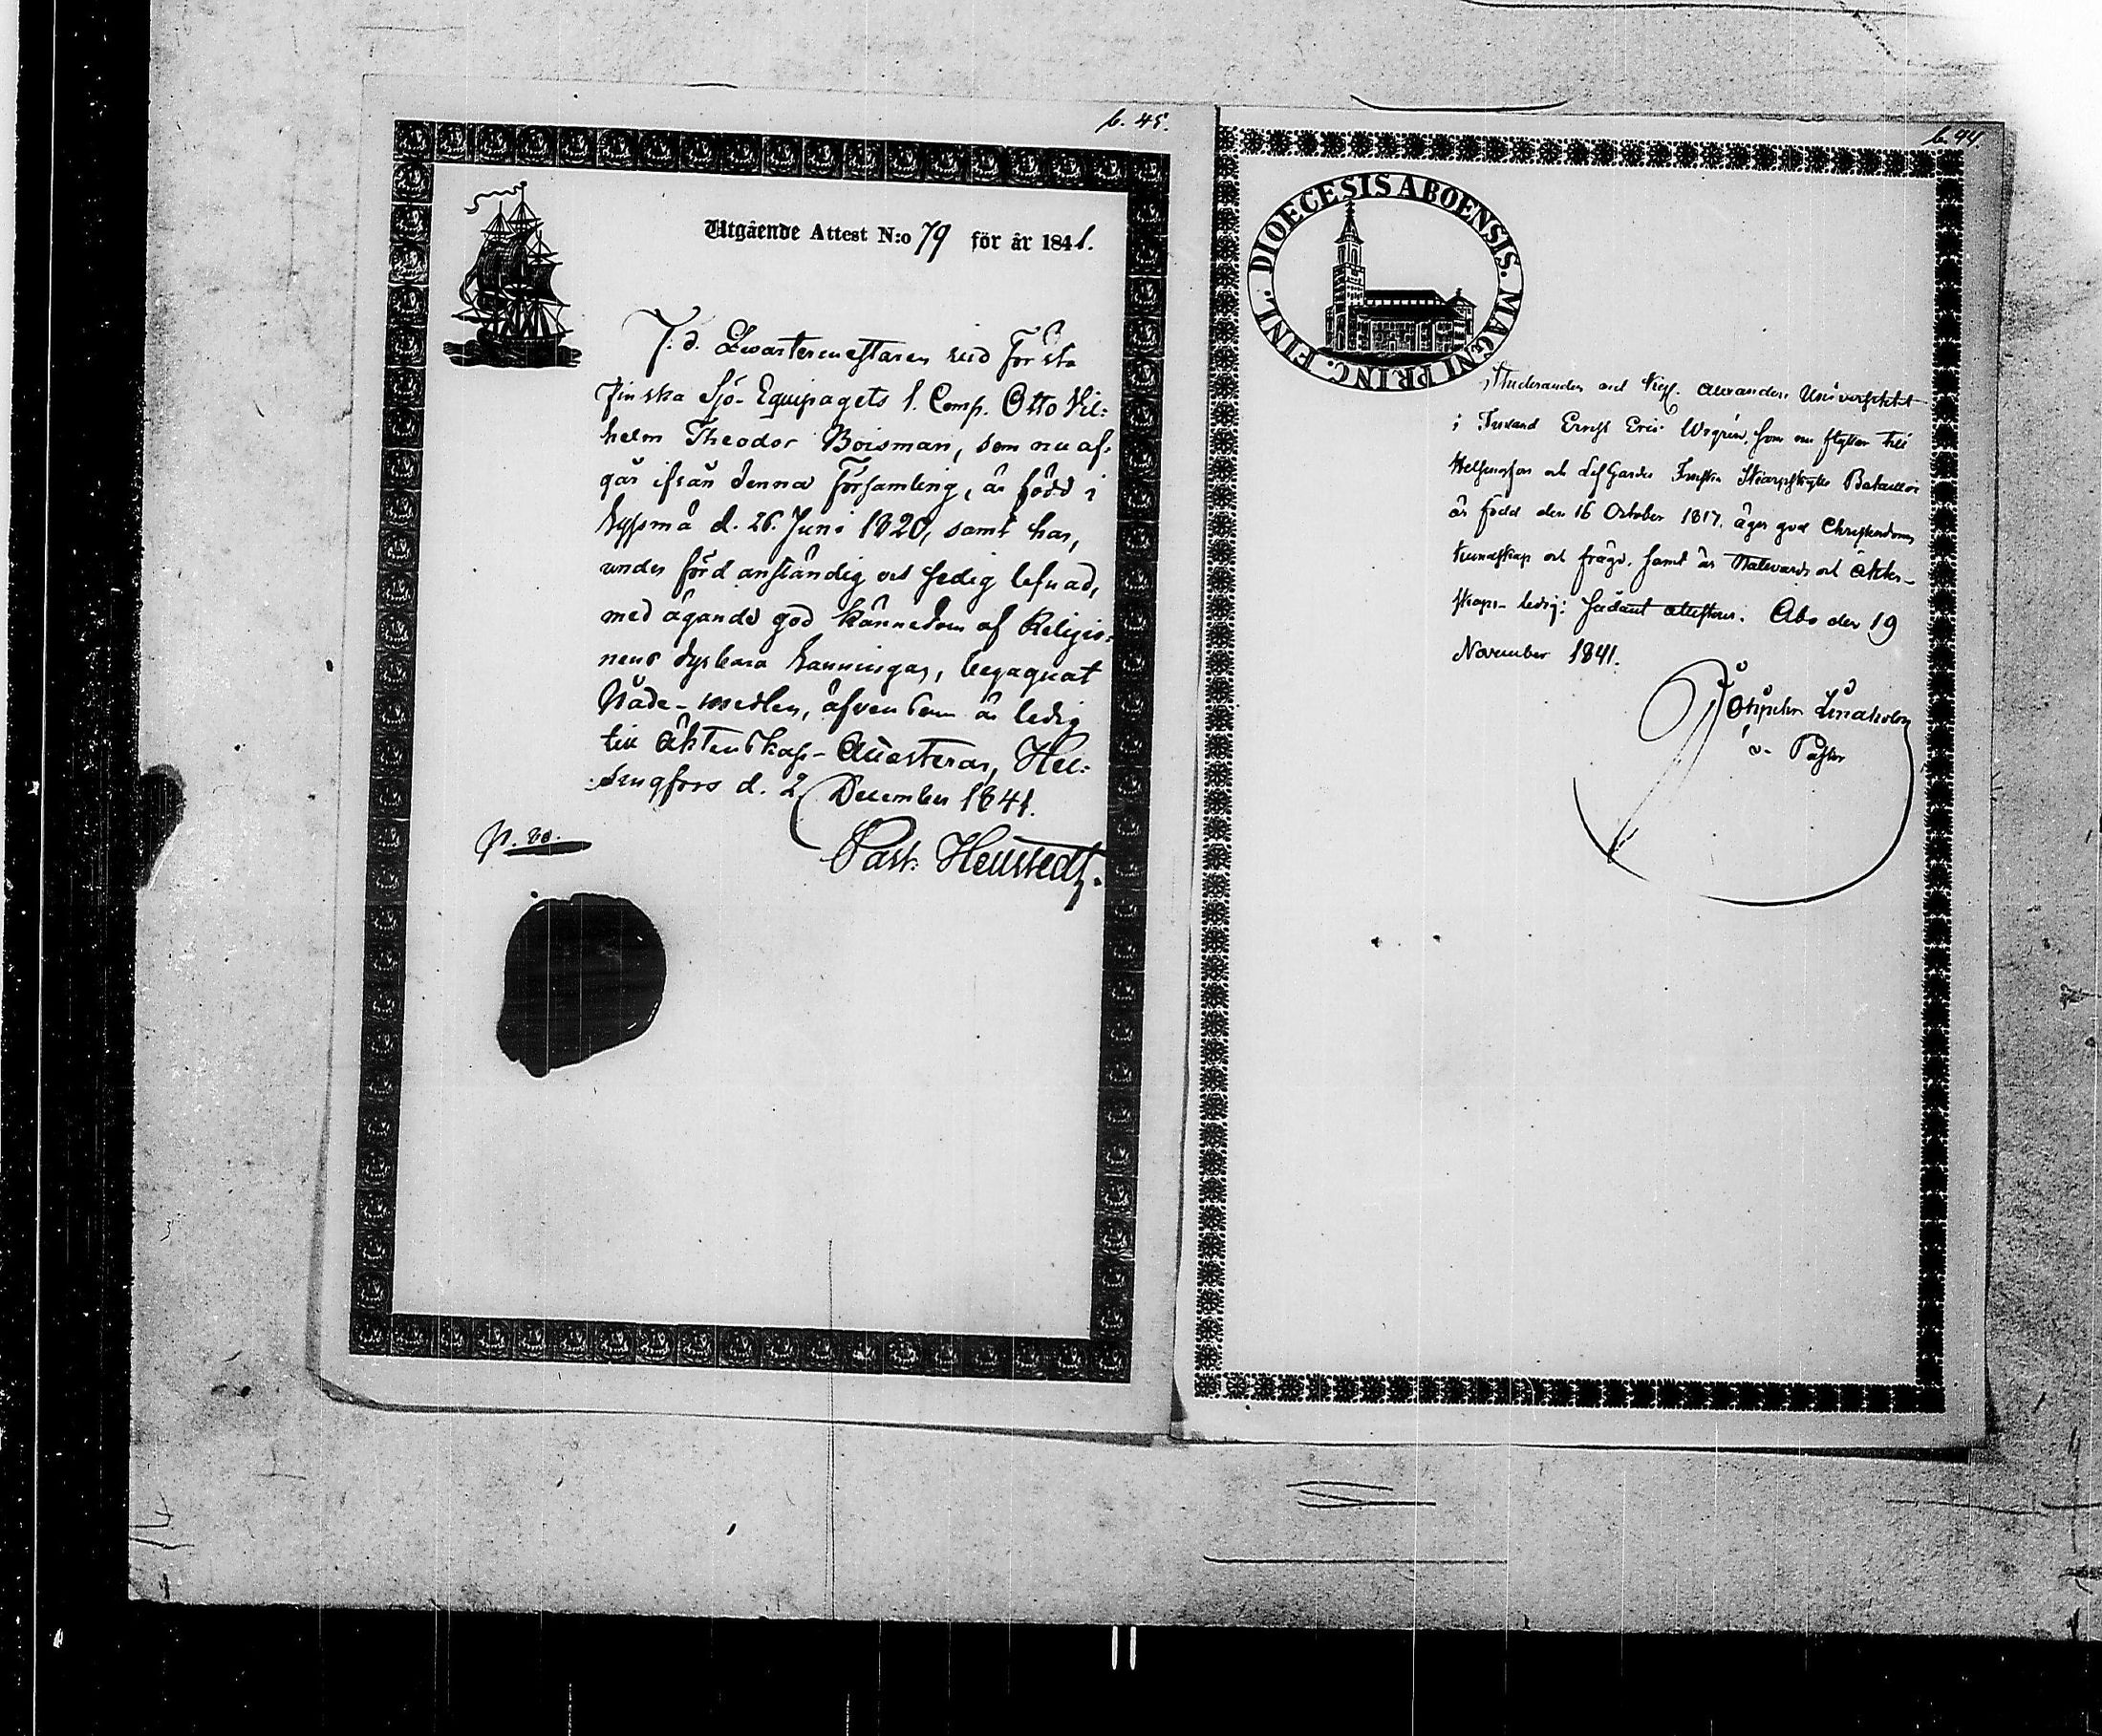 b. 45.
Utgående Attest N:o 79 för år 1841.
T. d. Qvartermästaren vid Första
finska Sjö-Equipagets 1. Comp. Otto Vil-
helm Theodor Boisman, som nu af-
går ifrån denna Församling, är född i
d. 26. Juni 1820, samt har,
under förd anständig och sedig lefnad,
med ägande god kännedom af Religio-
nens dyrbara sanningar, begagnat
Nåde-medlen, äfven som är ledig
till äktenskap - Attesteras, Hel-
singfors d. 2 December 1841.
Past. Hellstedt.
b. 44.
DIOECESIS ABOENSIS. MAGNI PRINC. FINL.
Studeranden vid Kejs. Alexanders Universitetet
i Finland Eric som nu flyttar till
Helsingfors och Lif Gardes Finska Skarpskytte Bataillon
är född den 16 October 1817, äger god Christendoms
kunskap och frägd, samt är Nattvards och äkten-
skaps- ledig: sådant attesteras. Åbo den 19
November 1841.
v. Pastor